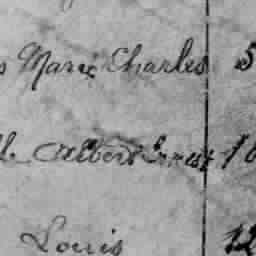 s Marie Charles 5
l. Albert Ernest 10
Louis 12